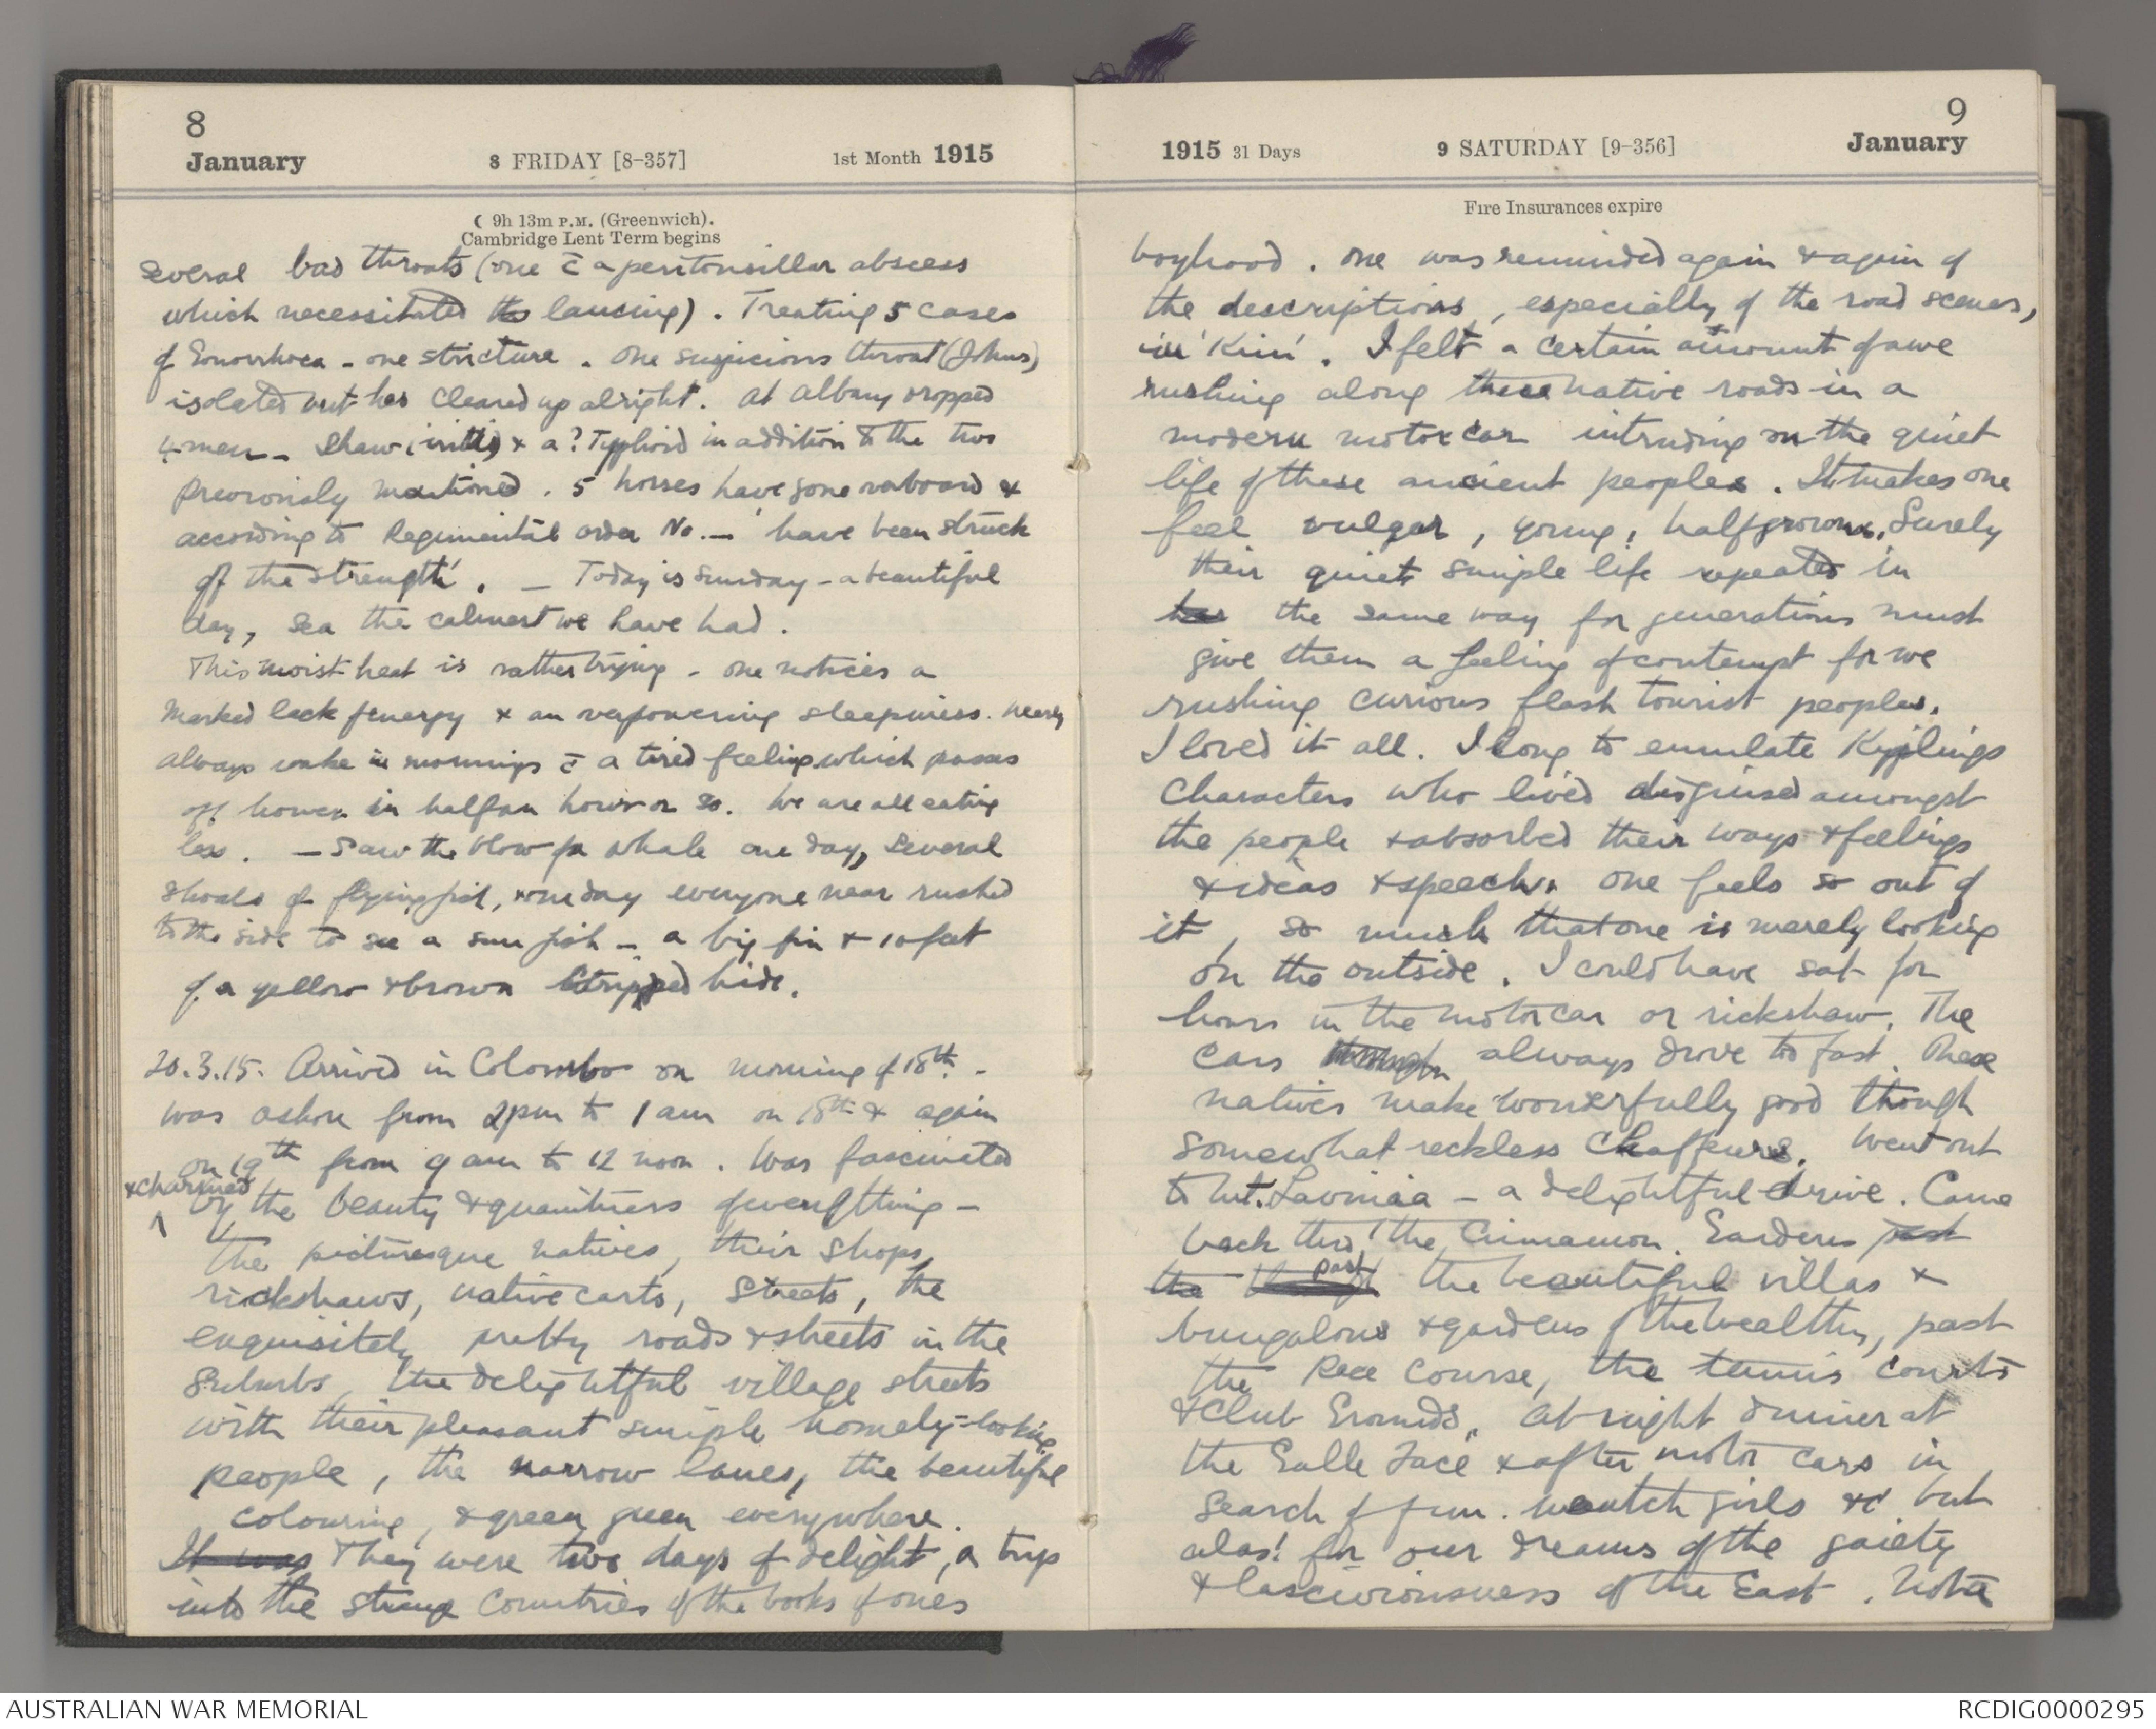 8
January
8 FRIDAY [8-357]
1st Month 1915
☾ 9h 13m P.M. (Greenwich).
Cambridge Lent Term begins
several bad throats (one c̄ a peritonsillar abscess
which necessitated the lancing). Treating 5 cases
of Gonorrhoea - one stricture. One suspicious throat (Johns)
isolated but has cleared up alright. At Albany dropped
4 men - Shaw & a ? Typhoid in addition to the two
previously mentioned. 5 horses have gone overboard &
according to Regimental order No. — 'have been struck
off the strength'. — Today is Sunday - a beautiful
day, sea the calmest we have had.
This moist heat is rather trying - one notices a
marked lack of energy & an overpowering sleepiness. Nearly
always wake in mornings c̄ a tired feeling which passes
off however in half an hour or so. We are all eating
less. — Saw the blow of a whale one day, several
shoals of flying fish, & one day everyone near rushed
to the side to see a sun fish - a big fin & 10 feet
of a yellow & brown stripped hide.
20.3.15. Arrived in Colombo on morning of 18th. -
was ashore from 2pm to 1 am on 18th & again
on 19th from 9 am to 12 noon. Was fascinated
& charmed
by the beauty & quaintness of everything -
the picturesque natives, their shops,
rickshaws, native carts, streets, the
exquisitely pretty roads & streets in the
suburbs, the delightful village streets
with their pleasant simple homely-looking
people, the narrow lanes, the beautiful
colouring, & green green everywhere.
It was They were two days of delight, a trip
into the strange countries of the books of ones
9
January
1915 31 Days
9 SATURDAY [9-356]
Fire Insurances expire
boyhood. One was reminded again & again of
the descriptions, especially of the road scenes,
in 'Kim'. I felt a certain amount of awe
rushing along these native roads in a
modern motor car intruding on the quiet
life of these ancient peoples. It makes one
feel vulgar, young, halfgrown. Surely
their quiet simple life repeated in
the same way for generations must
give them a feeling of contempt for we
rushing curious flash tourist peoples.
I loved it all. I long to emulate Kyplings
characters who lived disguised amongst
the people & absorbed their ways & feelings
& ideas & speech. One feels so out of
it, so much that one is merely looking
on the outside. I could have sat for
hours in the motor car or rickshaw. The
cars always drove too fast. These
natives make wonderfully good though
somewhat reckless chaffeurs. Went out
to Mt. Lavinia - a delightful drive. Came
back thro' the Cinnamon Gardens past
the past the beautiful villas &
bungalows & gardens of the wealthy, past
the Race Course, the tennis courts
& Club Grounds. At night dinner at
the Galle Face & after motor cars in
search of fun. Nautch girls &c but
alas! for our dreams of the gaiety
& lasciviousness of the East. Not a
AUSTRALIAN WAR MEMORIAL
RCDIG0000295